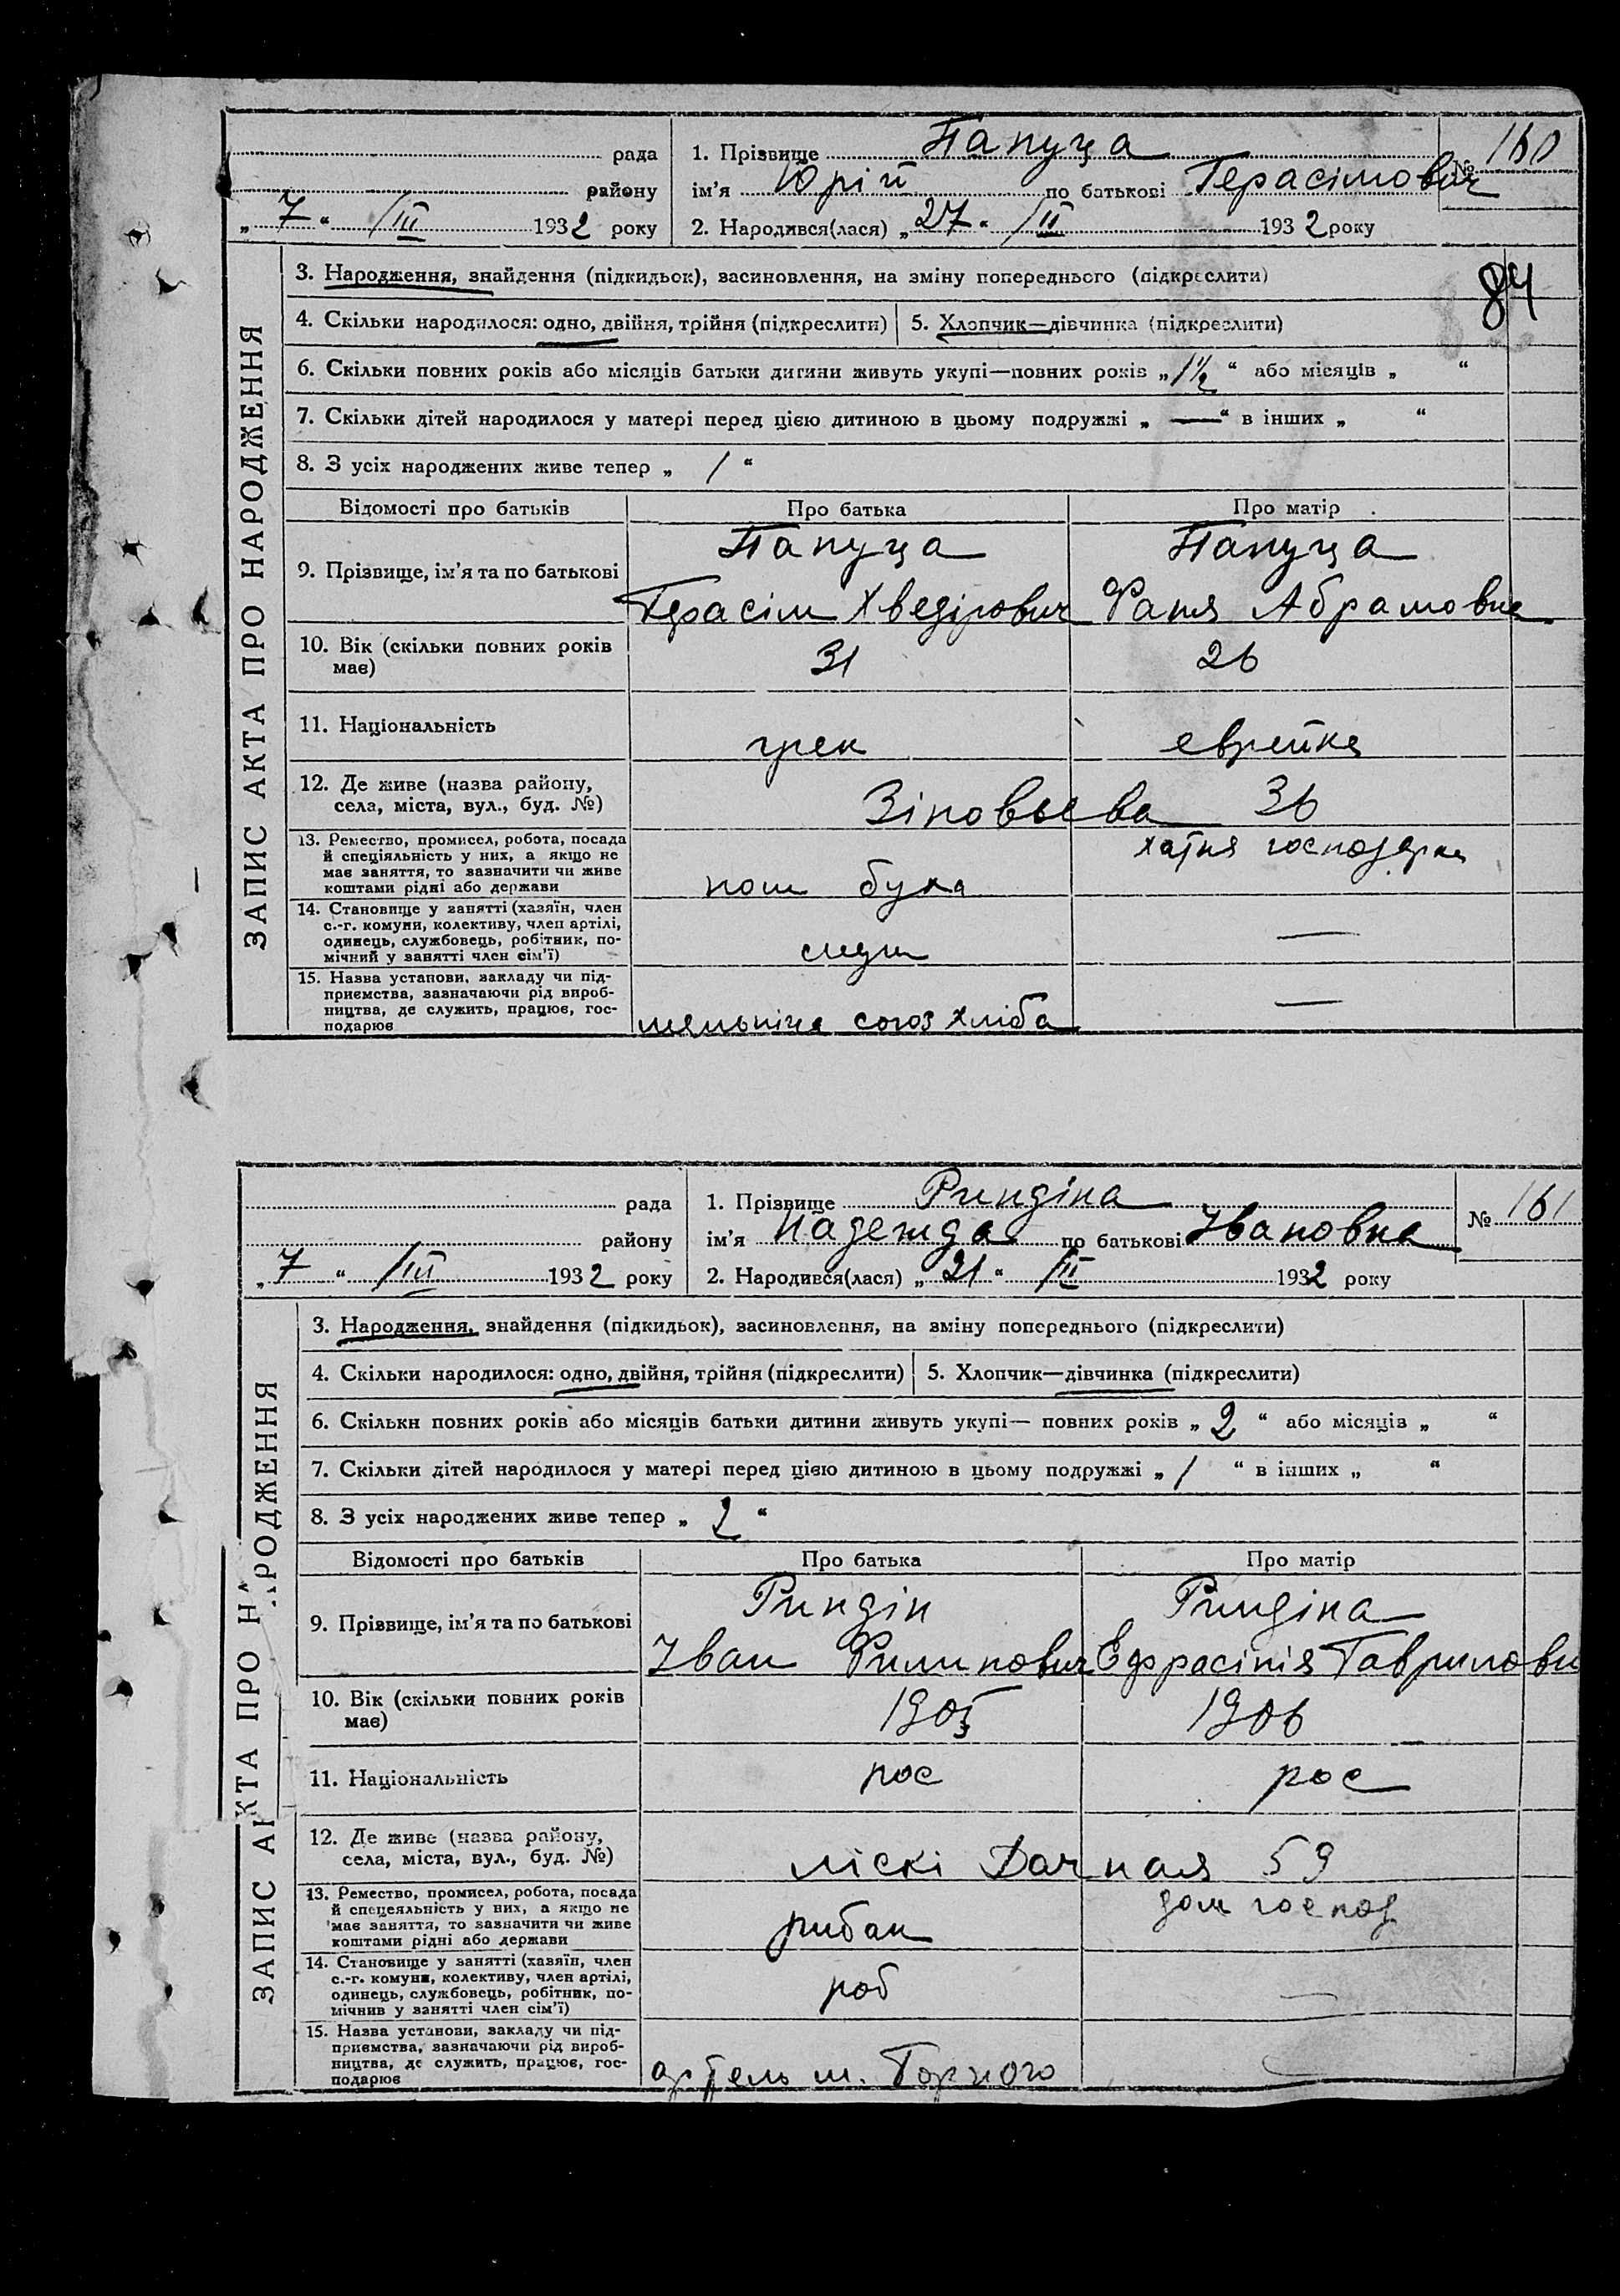 рада
1. Прізвище Папуца
№ 160
району
ім'я Юрій по батькові Герасімович
„ 7 “ /III 1932 року
2. Народився(лася) „ 27 “ /II 1932 року
84
ЗАПИС АКТА ПРО НАРОДЖЕННЯ
3. Народження, знайдення (підкидьок), засиновлення, на зміну попереднього (підкреслити)
4. Скільки народилося: одно, двійня, трійня (підкреслити)
5. Хлопчик—дівчинка (підкреслити)
6. Скільки повних років або місяців батьки дитини живуть укупі—повних років „ 1 1/2 “ або місяців „ “
7. Скільки дітей народилося у матері перед цією дитиною в цьому подружжі „ — “ в інших „ “
8. З усіх народжених живе тепер „ 1 “
Відомості про батьків
Про батька
Про матір
9. Прізвище, ім'я та по батькові
Папуца
Герасім Хведірович
Папуца
Фаня Абрамовна
10. Вік (скільки повних років
має)
31
26
11. Національність
грек
еврейка
12. Де живе (назва району,
села, міста, вул., буд. №)
Зіновьева 36
13. Ремество, промисел, робота, посада
й спеціяльність у них, а якщо не
має заняття, то зазначити чи живе
коштами рідні або держави
пом буха
хатня господарка
14. Становище у занятті (хазяїн, член
с.-г. комуни, колективу, член артілі,
одинець, службовець, робітник, по-
мічний у занятті член сім'ї)
служ
—
15. Назва установи, закладу чи під-
приємства, зазначаючи рід вироб-
ництва, де служить, працює, гос-
подарює
союз хліба
—
рада
1. Прізвище Риндіна
№ 161
району
ім'я Надежда по батькові Івановна
„ 7 “ /III 1932 року
2. Народився(лася) „ 21 “ /II 1932 року
ЗАПИС АКТА ПРО НАРОДЖЕННЯ
3. Народження, знайдення (підкидьок), засиновлення, на зміну попереднього (підкреслити)
4. Скільки народилося: одно, двійня, трійня (підкреслити)
5. Хлопчик—дівчинка (підкреслити)
6. Скільки повних років або місяців батьки дитини живуть укупі— повних років „ 2 “ або місяців „ “
7. Скільки дітей народилося у матері перед цією дитиною в цьому подружжі „ 1 “ в інших „ “
8. З усіх народжених живе тепер „ 2 “
Відомості про батьків
Про батька
Про матір
9. Прізвище, ім'я та по батькові
Риндін
Іван Филипович
Риндіна
Ефрасінія Гавриловн
10. Вік (скільки повних років
має)
1905
1906
11. Національність
рос
рос
12. Де живе (назва району,
села, міста, вул., буд. №)
ліскі Дачная 59
13. Ремество, промисел, робота, посада
й спецеяльність у них, а якщо не
має заняття, то зазначити чи живе
коштами рідні або держави
рибак
дом господ
14. Становище у занятті (хазяїн, член
с.-г. комуни, колективу, член артілі,
одинець, службовець, робітник, по-
мічнив у занятті член сім'ї)
роб
—
15. Назва установи, закладу чи під-
приємства, зазначаючи рід вироб-
ництва, де служить, працює, гос-
подарює
артель м. Горкого